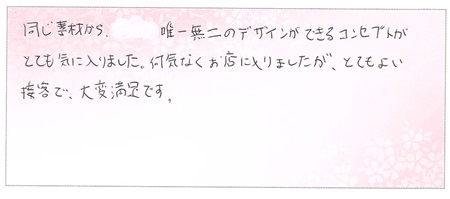 同じ素材から、 唯一無二のデザインができるコンセプトが
とても気に入りました。何気なくお店に入りましたが、とてもよい
接客で、大変満足です。